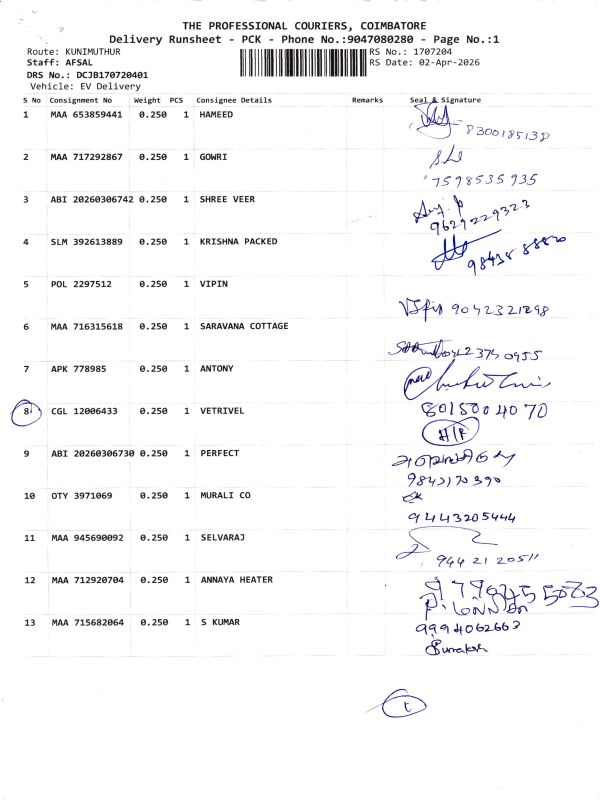 THE PROFESSIONAL COURIERS, COIMBATORE
Delivery Runsheet - PCK - Phone No.:9047080280 - Page No.:1
Route: KUNIMUTHUR RS No.: 1707204
Staff: AFSAL RS Date: 02-Apr-2026
DRS No.: DCJB170720401
Vehicle: EV Delivery
S No Consignment No Weight PCS Consignee Details Remarks Seal & Signature
1 MAA 653859441 0.250 1 HAMEED
8300185138
2 MAA 717292867 0.250 1 GOWRI
7598535935
3 ABI 20260306742 0.250 1 SHREE VEER
9629229323
4 SLM 392613889 0.250 1 KRISHNA PACKED
5 POL 2297512 0.250 1 VIPIN
9042321298
6 MAA 716315618 0.250 1 SARAVANA COTTAGE
7 APK 778985 0.250 1 ANTONY
8 CGL 12006433 0.250 1 VETRIVEL
8015004070
H/F
9 ABI 20260306730 0.250 1 PERFECT
10 OTY 3971069 0.250 1 MURALI CO
9443205444
11 MAA 945690092 0.250 1 SELVARAJ
12 MAA 712920704 0.250 1 ANNAYA HEATER
13 MAA 715682064 0.250 1 S KUMAR
9994062663
1